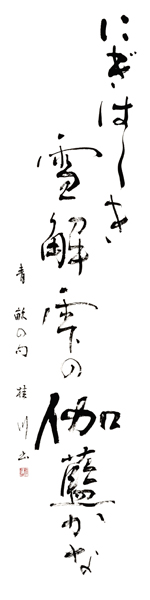 にぎはしき雪解雫の伽藍かな
青畝の句 桂川書